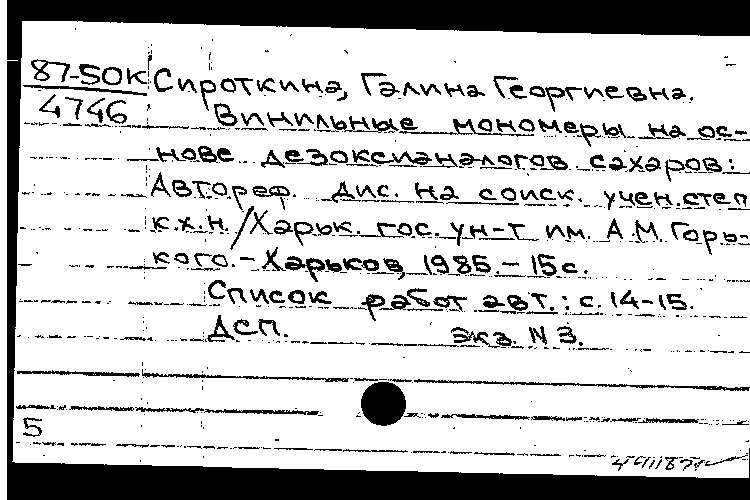 87-50К Сироткина, Галина Георгиевна.
4746 Винильные мономеры на ос-
нове дезоксианалогов сахаров:
Автореф. дис. на соиск. учен. степ
к.х.н. / Харьк. гос. ун-т им. А.М. Горь-
кого. - Харьков, 1985. - 15 с.
Список работ авт.: с. 14-15.
ДСП. экз. N 3.
5